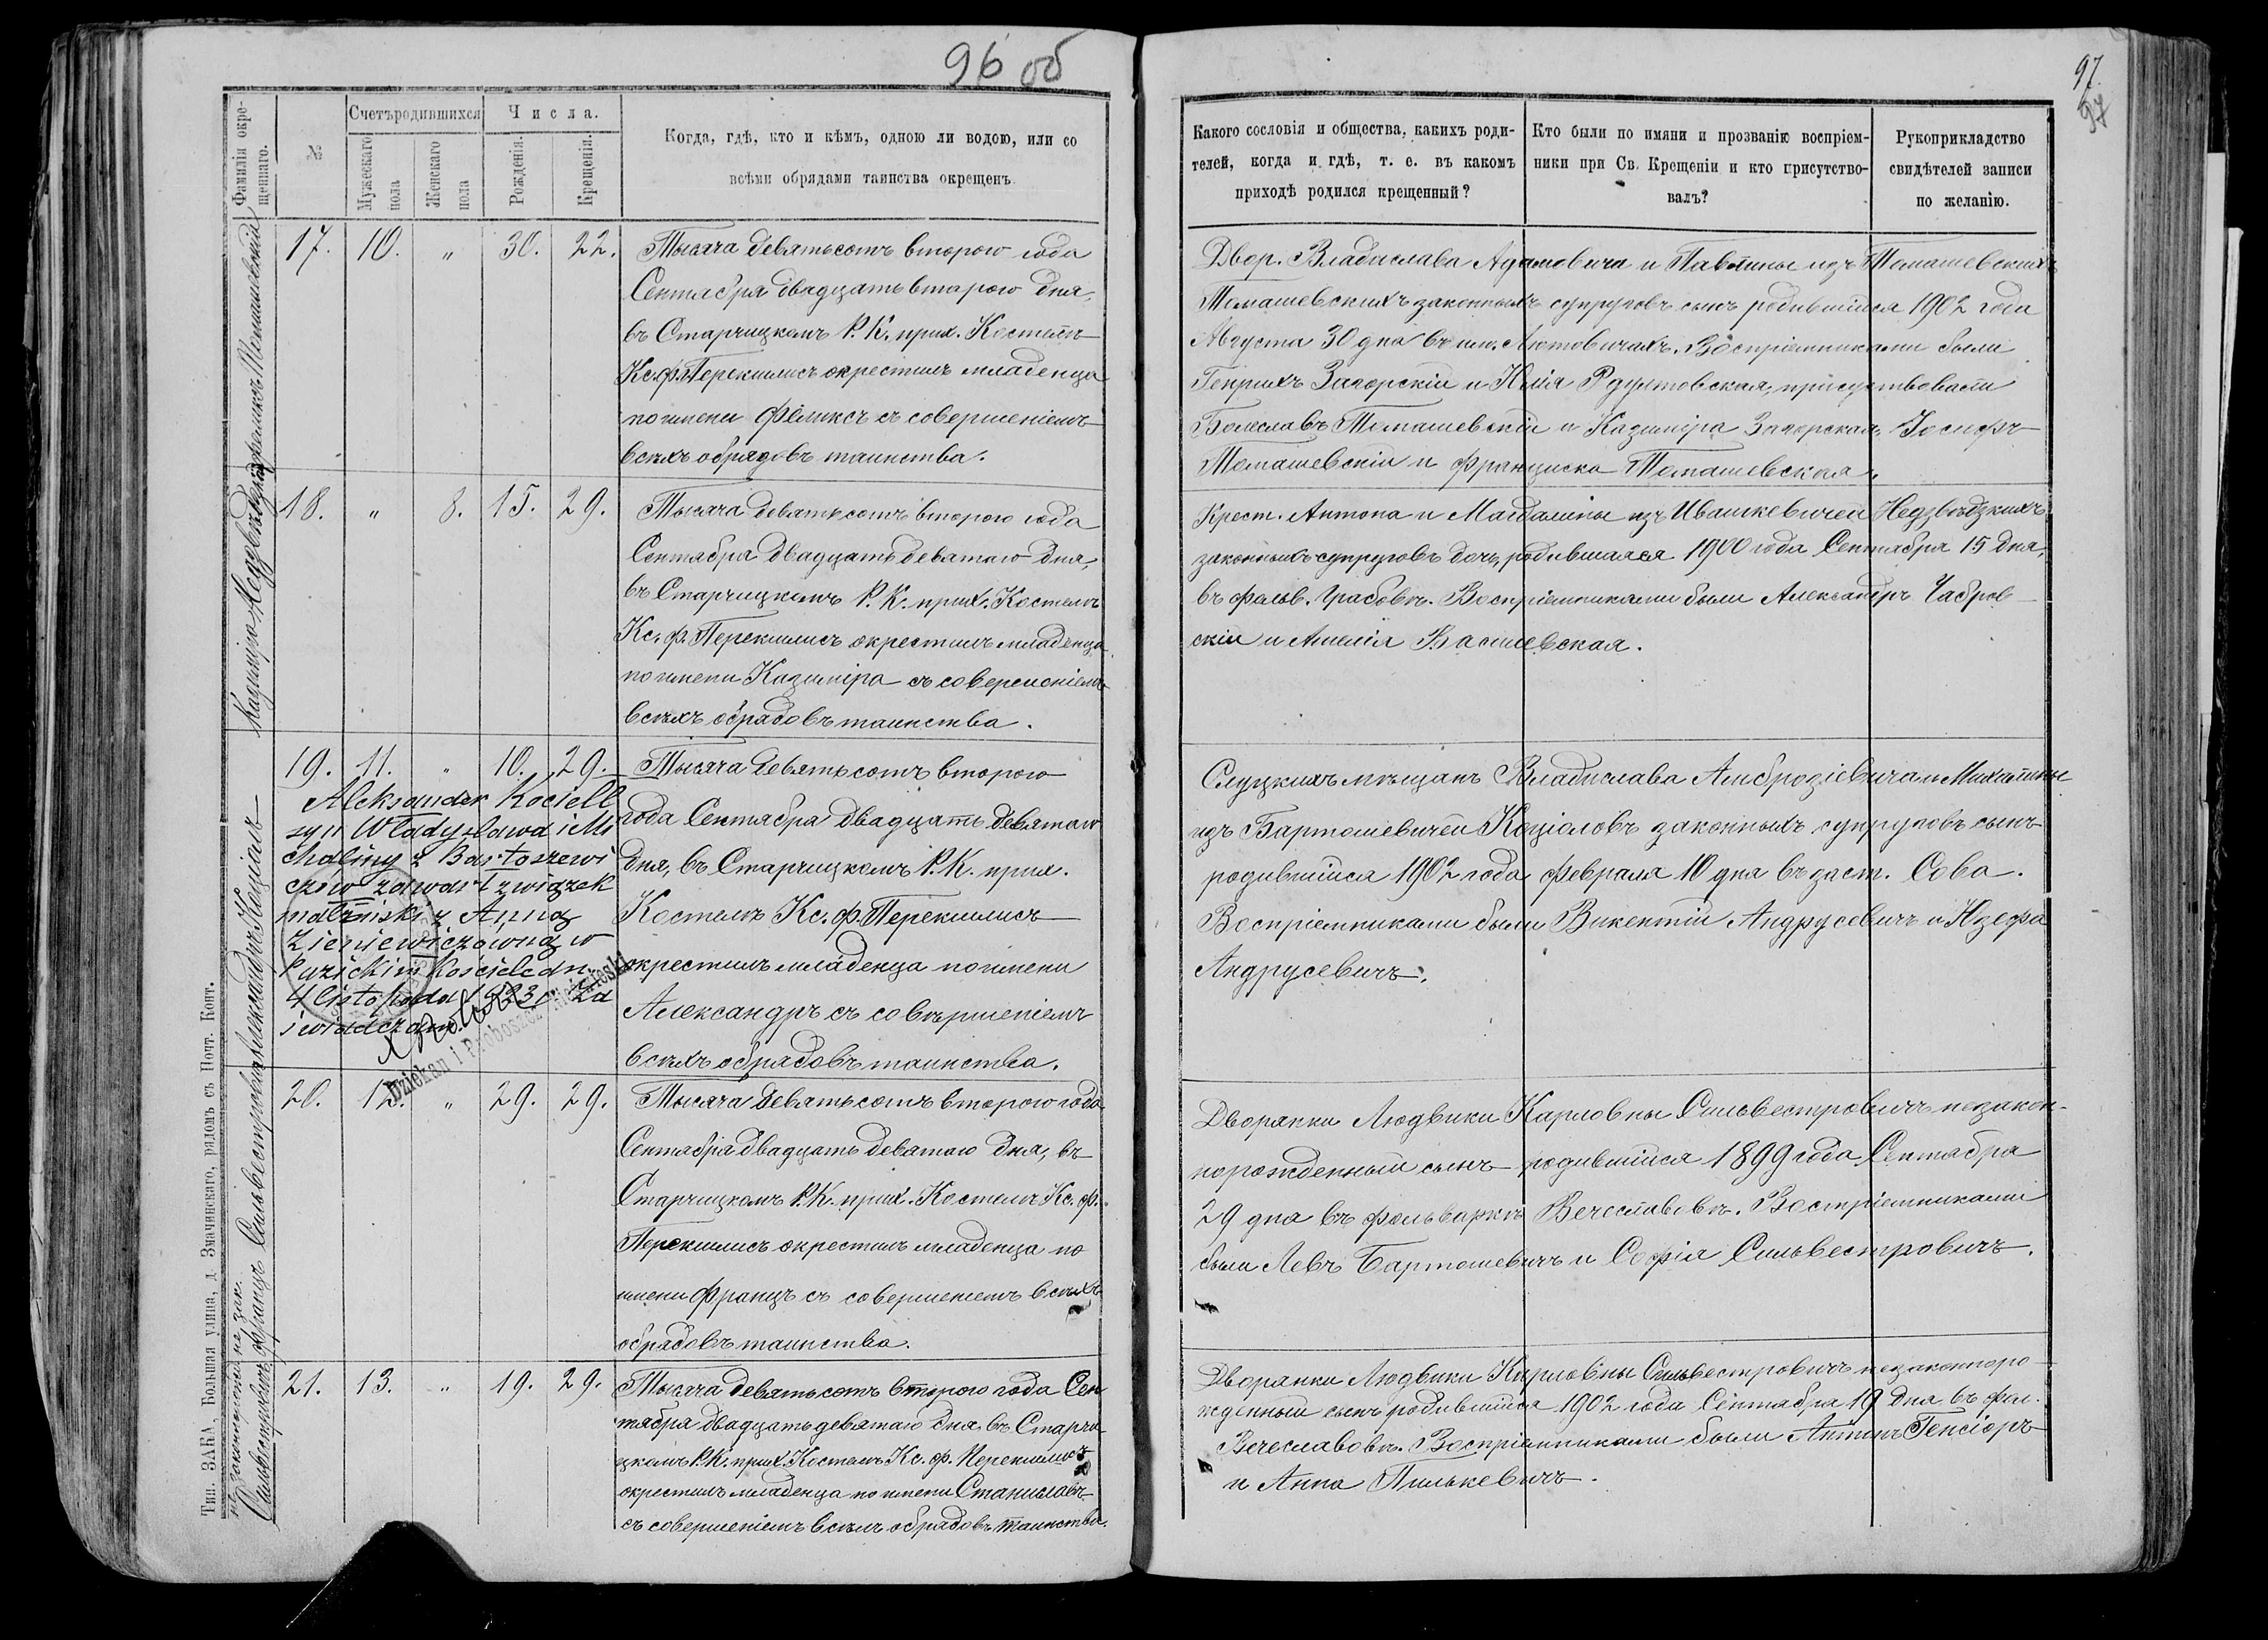 96 об
Фамилія окре-
щеннаго.
№
Счетъ родившихся
Мужескаго
пола
Женскаго
пола
Числа.
Рожденія.
Крещенія.
Когда, гдѣ, кто и кѣмъ, одною ли водою, или со
всѣми обрядами таинства окрещенъ.
Феликсъ Томашевскій
17. 10. „ 30. 22.
Тысяча девятьсотъ второго года
Сентября двадцать второго дня,
въ Старчицкомъ Р. К. прих. Костелѣ
Кс. Ф. Перекшлисъ окрестилъ младенца
по имени Феликсъ съ совершеніемъ
всѣхъ обрядовъ таинства.
Казиміра Недзвѣдзкая
18. „ 8. 15. 29.
Тысяча девятьсотъ второго года
Сентября двадцать девятаго дня,
въ Старчицкомъ Р. К. прих. Костелѣ
Кс. Ф. Перекшлисъ окрестилъ младенца
по имени Казиміра съ совершеніемъ
всѣхъ обрядовъ таинства.
Александръ Коціолъ
19. 11. „ 10. 29.
Тысяча девятьсотъ второго
года Сентября двадцать девятаго
дня, въ Старчицкомъ Р. К. прих.
Костелѣ Кс. Ф. Перекшлисъ
окрестилъ младенца по имени
Александръ съ совершеніемъ
всѣхъ обрядовъ таинства.
Aleksander Kociełł
syn Władysława i Mi
chaliny z Bartoszewi
czów zawarł związek
małżeński z Anną
Zieniewiczówną w
kościele dn.
4 listopada 193
świadczam
Dziekan i Proboszcz
Сильвестровичъ Францъ
20. 12. „ 29. 29.
Тысяча девятьсотъ второго года
Сентября двадцать девятаго дня, въ
Старчицкомъ Р. К. прих. Костелѣ Кс. Ф.
Перекшлисъ окрестилъ младенца по
имени Францъ съ совершеніемъ всѣхъ
обрядовъ таинства.
Сильвестровичъ
21. 13. „ 19. 29.
Тысяча девятьсотъ второго года Сен
тября двадцать девятаго дня въ Старчи
цкомъ Р. К. прих. Костелѣ Кс. Ф. Перекшлисъ
окрестилъ младенца по имени Станиславъ
съ совершеніемъ всѣхъ обрядовъ таинства.
Тип. ЗАКА, Большая улица, д. Значинского, рядомъ съ Почт. Конт.
97.
97
Какого сословія и общества, какихъ роди-
телей, когда и гдѣ, т. е. въ какомъ
приходѣ родился крещенный?
Кто были по имяни и прозванію воспріем-
ники при Св. Крещеніи и кто присутство-
валъ?
Рукоприкладство
свидѣтелей записи
по желанію.
Двор. Владислава Адамовича и Павлины изъ Томашевскихъ
Томашевскихъ законныхъ супруговъ сынъ родившійся 1902 года
Августа 30 дня въ им. Лютовичахъ. Воспріемниками были
Генрихъ Загорскій и Юлія Рдултовская, присутствовали
Болеславъ Томашевскій и Казиміра Загорская, Іосифъ
Томашевскій и Франциска Томашевская.
Крест. Антона и Магдалины изъ Ивашкевичей Недзвѣдзкихъ
законныхъ супруговъ дочь, родившаяся 1900 года Сентября 15 дня,
въ фольв. Грабовѣ. Воспріемниками были Александръ Чабров
скій и Амелія Василевская.
Слуцкихъ мѣщанъ Владислава Амброзіевича и Михалины
изъ Бартошевичей Коціоловъ законныхъ супруговъ сынъ
родившійся 1902 года Февраля 10 дня въ заст. Сова.
Воспріемниками были Викентій Андрусевичъ и Юзефа
Андрусевичъ.
Дворянки Людвики Карловны Сильвестровичъ незакон-
норожденный сынъ родившійся 1899 года Сентября
29 дня въ фольваркѣ Вечеславовѣ. Воспріемниками
были Левъ Бартошевичъ и Софія Сильвестровичъ.
Дворянки Людвики Карловны Сильвестровичъ незаконноро
жденный сынъ родившійся 1902 года Сентября 19 дня въ фол.
Вечеславовѣ. Воспріемниками были Антонъ Генсіоръ
и Анна Пилькевичъ.